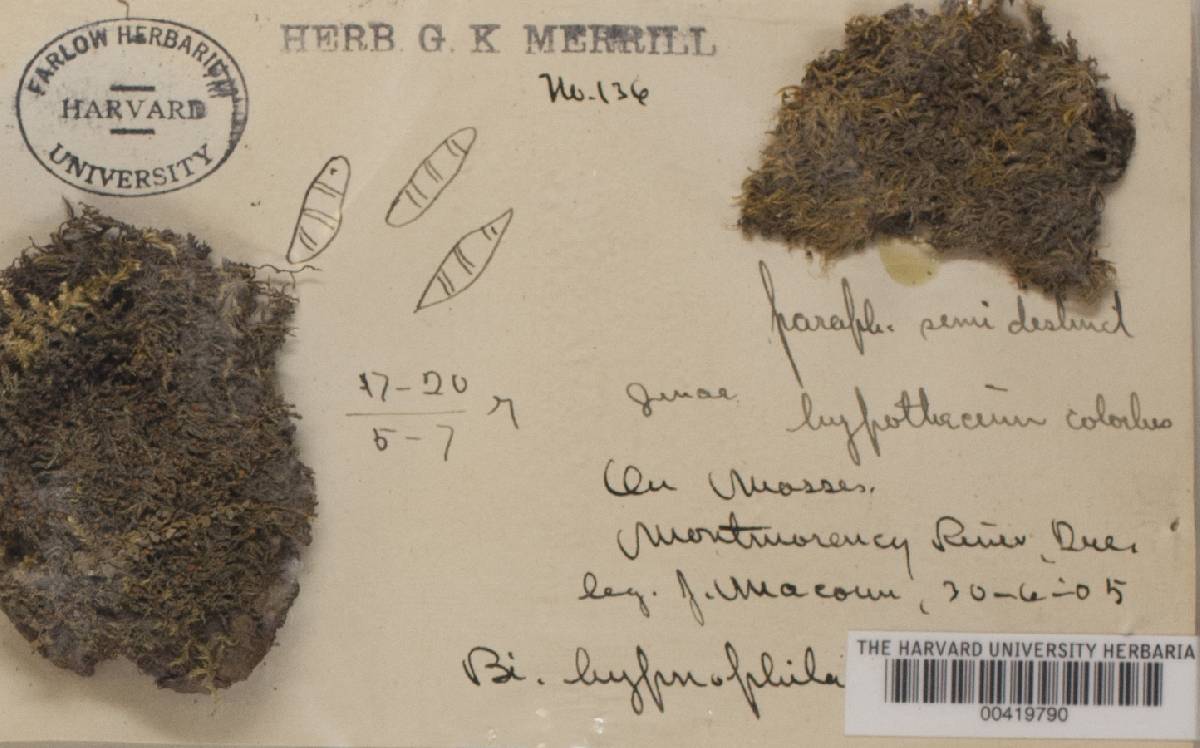 FARLOW HERBARIUM
HARVARD
UNIVERSITY
HERB. G. K MERRILL
No. 136
paraph. semi distinct
17-20
5-7
hypothecium colorless
On Mosses.
Montmorency River, Que.
leg. J. Macoun, 30-6-05
Bi. hypnophila
THE HARVARD UNIVERSITY HERBARIA
00419790